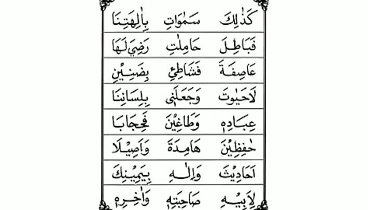 كَذٰلِكَ سَمٰوَاتٍ بِاٰلِهَتِنَا
قَبَاطِلَ حَامِلٰتِ رَضِىَ لَهَا
عَاصِفَةً فَشَاطِئِ بِضَنِيْنٍ
لَاحَيٰوتَ وَجَعَلَنٰى بِلِسَانِنَا
عِبَادِهٖ وَطَاغِيْنَ فَحِجَابًا
حٰفِظِيْنَ هَامِدَةً وَاَصِيْلًا
اَحَادِيْثَ وَاِلٰهِ بِيَمِيْنِكَ
لِاَبِيْهِ صَاحِبَتِهٖ وَاٰخِرِهٖ